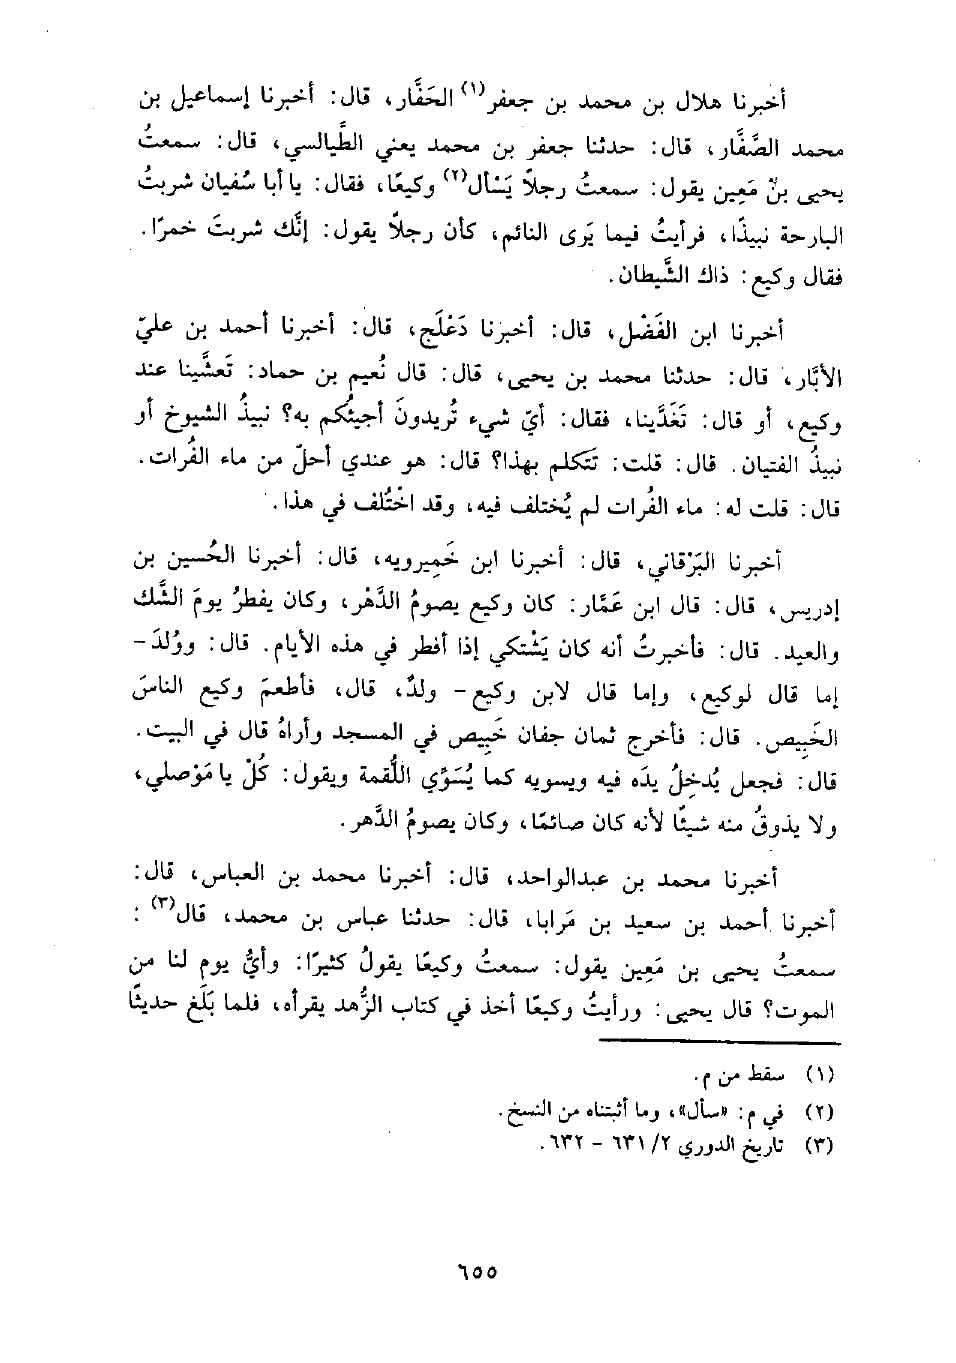 أخبرنا هلال بن محمد بن جعفر(١) الحَفَّار، قال: أخبرنا إسماعيل بن
محمد الصَّفَّار، قال: حدثنا جعفر بن محمد يعني الطَّيالسي، قال: سمعتُ
يحيى بنُ مَعِين يقول: سمعتُ رجلاً يَسْأل(٢) وكيعًا، فقال: يا أبا سُفيان شربتُ
البارحة نبيذًا، فرأيتُ فيما يَرى النائم، كأن رجلاً يقول: إنَّك شربتَ خمرًا.
فقال وكيع: ذاك الشَّيطان.
أخبرنا ابن الفَضْل، قال: أخبرنا دَعْلَج، قال: أخبرنا أحمد بن عليّ
الأبَّار، قال: حدثنا محمد بن يحيى، قال: قال نُعيم بن حماد: تَعشَّينا عند
وكيع، أو قال: تَغَدَّينا، فقال: أيّ شيء تُريدونَ أجيئُكم به؟ نبيذُ الشيوخ أو
نبيذُ الفتيان. قال: قلت: تتكلم بهذا؟ قال: هو عندي أحلّ من ماء الفُرات.
قال: قلت له: ماء الفُرات لم يُختلف فيه، وقد اخْتُلف في هذا.
أخبرنا البَرْقاني، قال: أخبرنا ابن خَمِيرويه، قال: أخبرنا الحُسين بن
إدريس، قال: قال ابن عَمَّار: كان وكيع يصومُ الدَّهْر، وكان يفطرُ يومَ الشَّك
والعيد. قال: فأخبرتُ أنه كان يَشْتكي إذا أفطر في هذه الأيام. قال: ووُلدَ -
إما قال لوكيع، وإما قال لابن وكيع - ولدٌ، قال، فأطعمَ وكيع الناسَ
الخَبِيص. قال: فأخرج ثمان جفان خَبِيص في المسجد وأراهُ قال في البيت.
قال: فجعل يُدخِلُ يدَه فيه ويسويه كما يُسَوِّي اللُّقمة ويقول: كُلْ يا مَوْصلي،
ولا يذوقُ منه شيئًا لأنه كان صائمًا، وكان يصومُ الدَّهر.
أخبرنا محمد بن عبدالواحد، قال: أخبرنا محمد بن العباس، قال:
أخبرنا أحمد بن سعيد بن مَرابا، قال: حدثنا عباس بن محمد، قال(٣):
سمعتُ يحيى بن مَعِين يقول: سمعتُ وكيعًا يقولُ كثيرًا: وأيُّ يوم لنا من
الموت؟ قال يحيى: ورأيتُ وكيعًا أخذ في كتاب الزُّهد يقرأه، فلما بَلَغ حديثًا
(١) سقط من م.
(٢) في م: «سأل»، وما أثبتناه من النسخ.
(٣) تاريخ الدوري ٢/ ٦٣١ - ٦٣٢.
٦٥٥